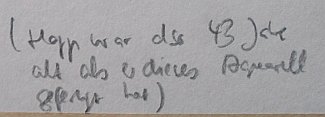 (Hopp war also 43 Jahre
alt als er dieses Aquarell
gefertigt hat)